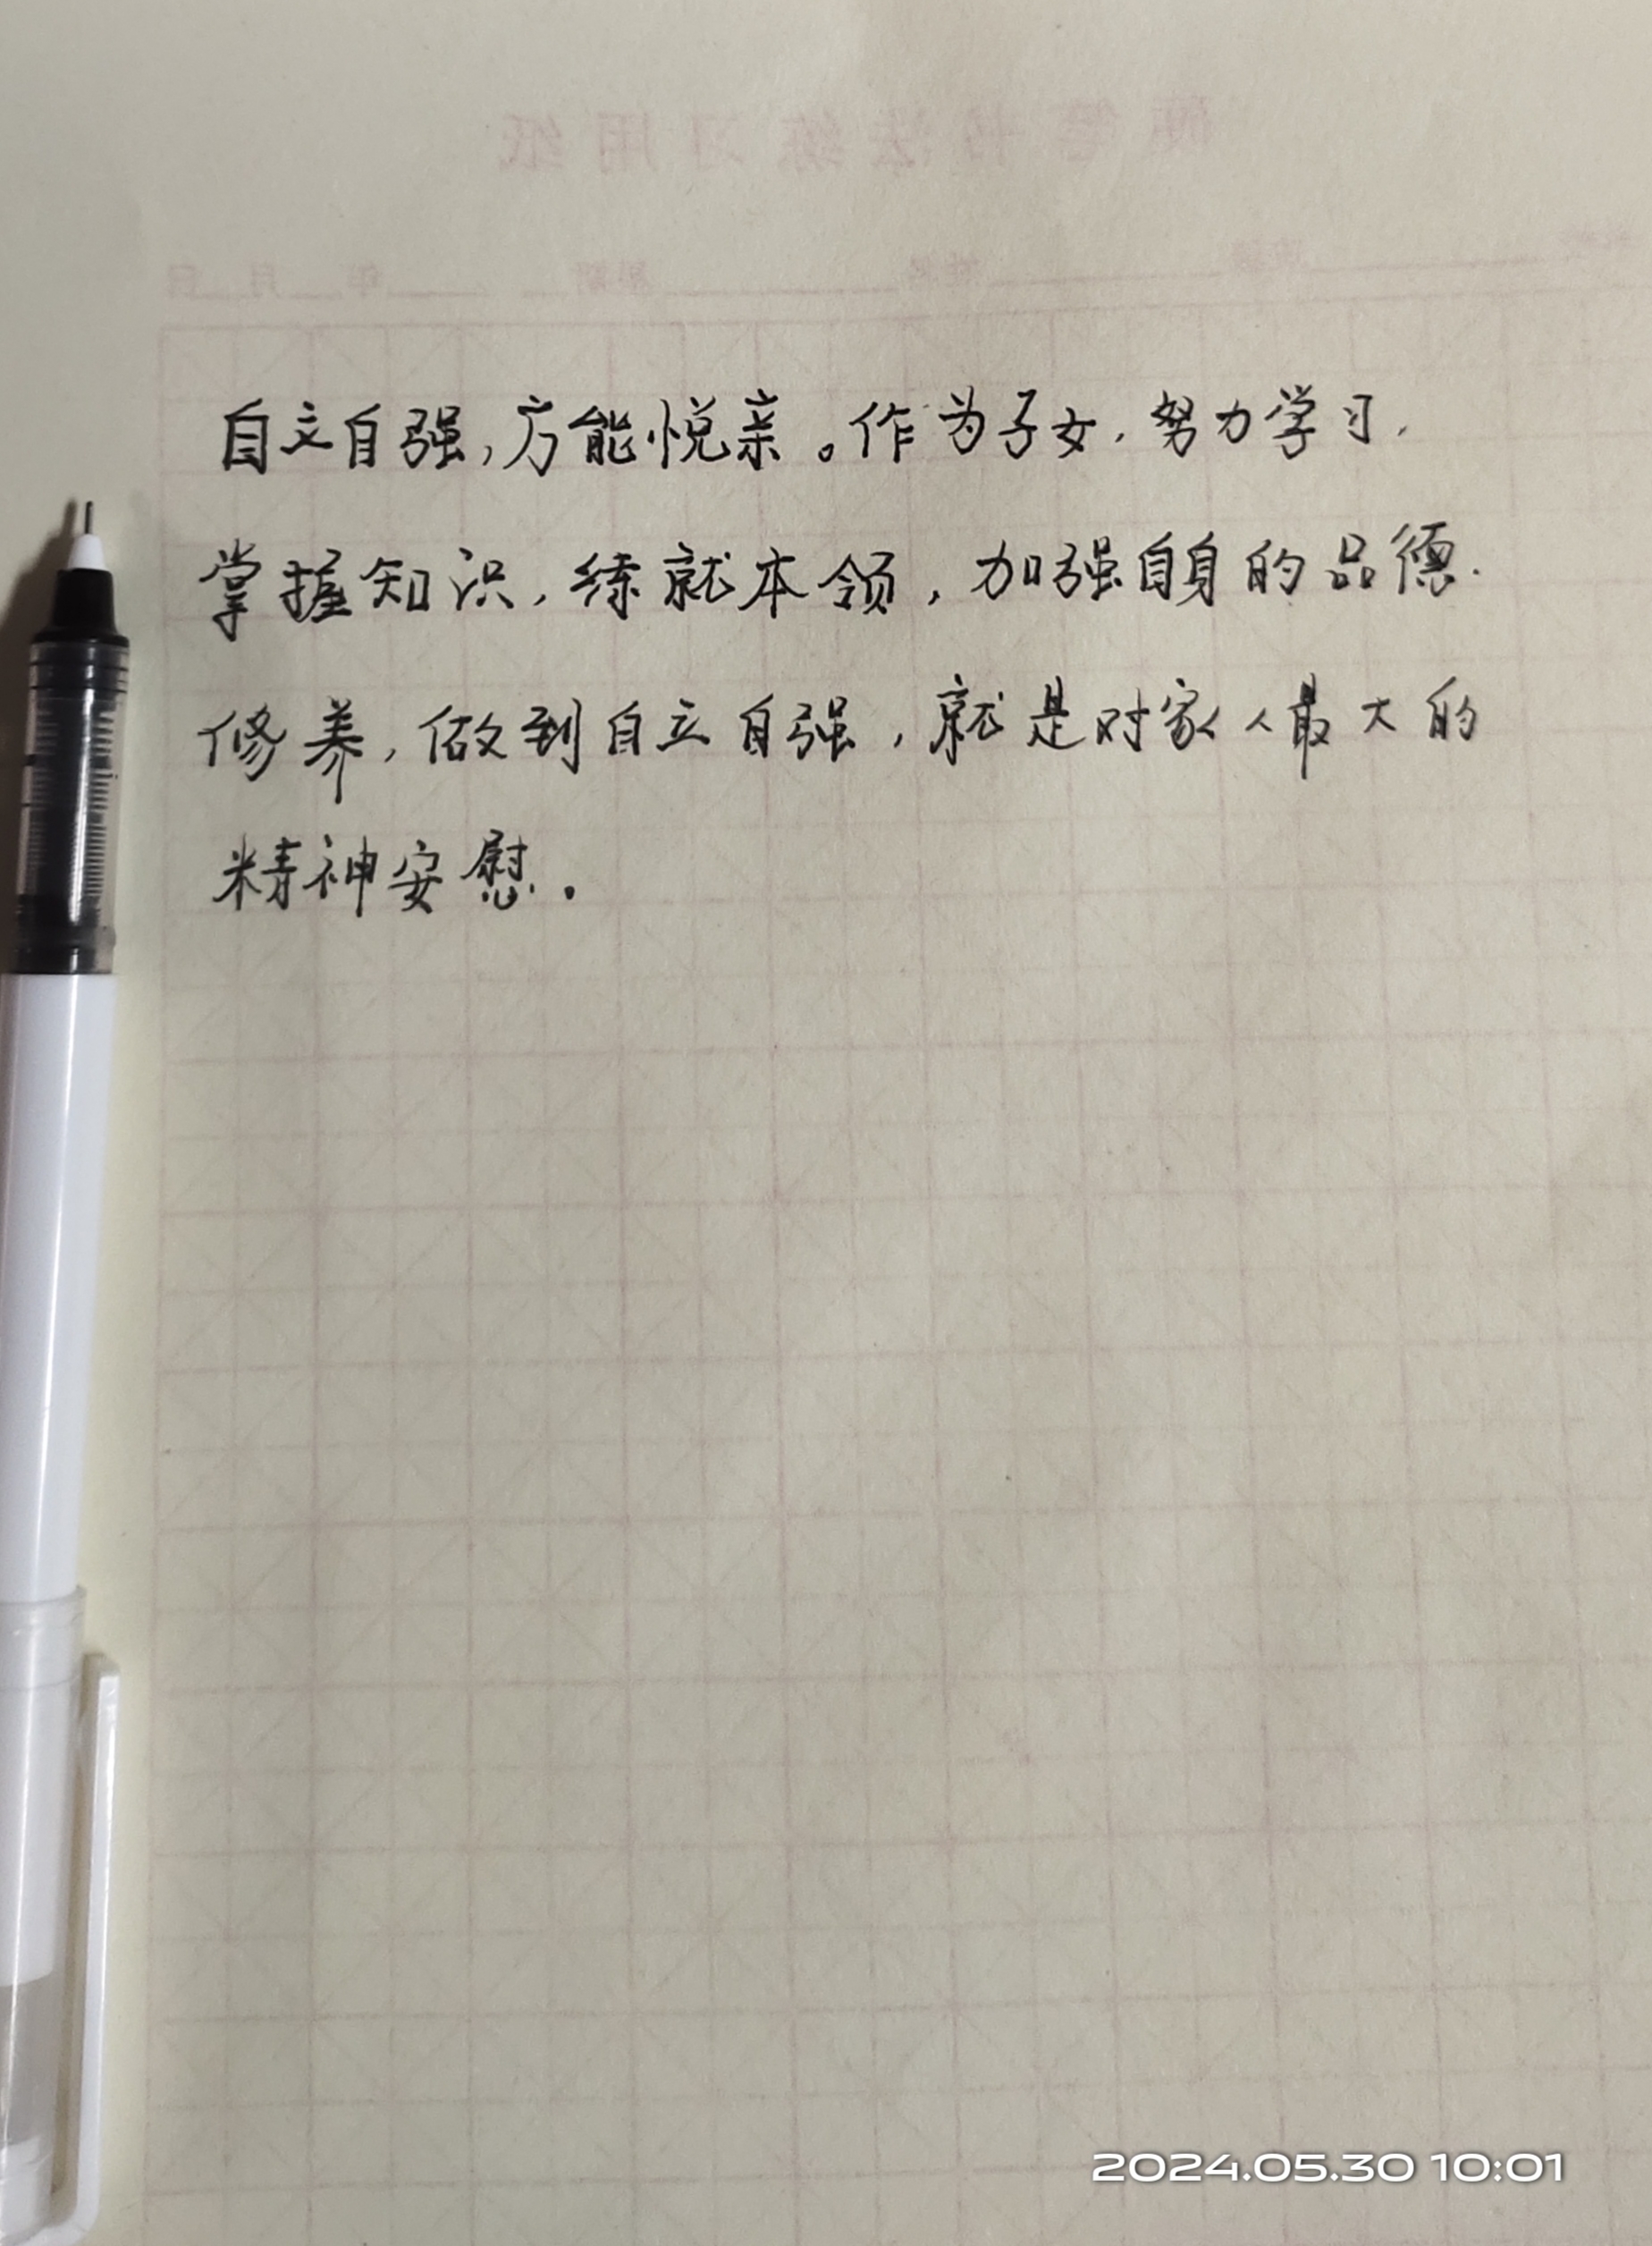 硬笔书法练习用纸
日 月 年 星期 姓名 班级
自立自强,方能悦亲。作为子女,努力学习,
掌握知识,练就本领,加强自身的品德.
修养,做到自立自强,就是对家人最大的
精神安慰.
2024.05.30 10:01